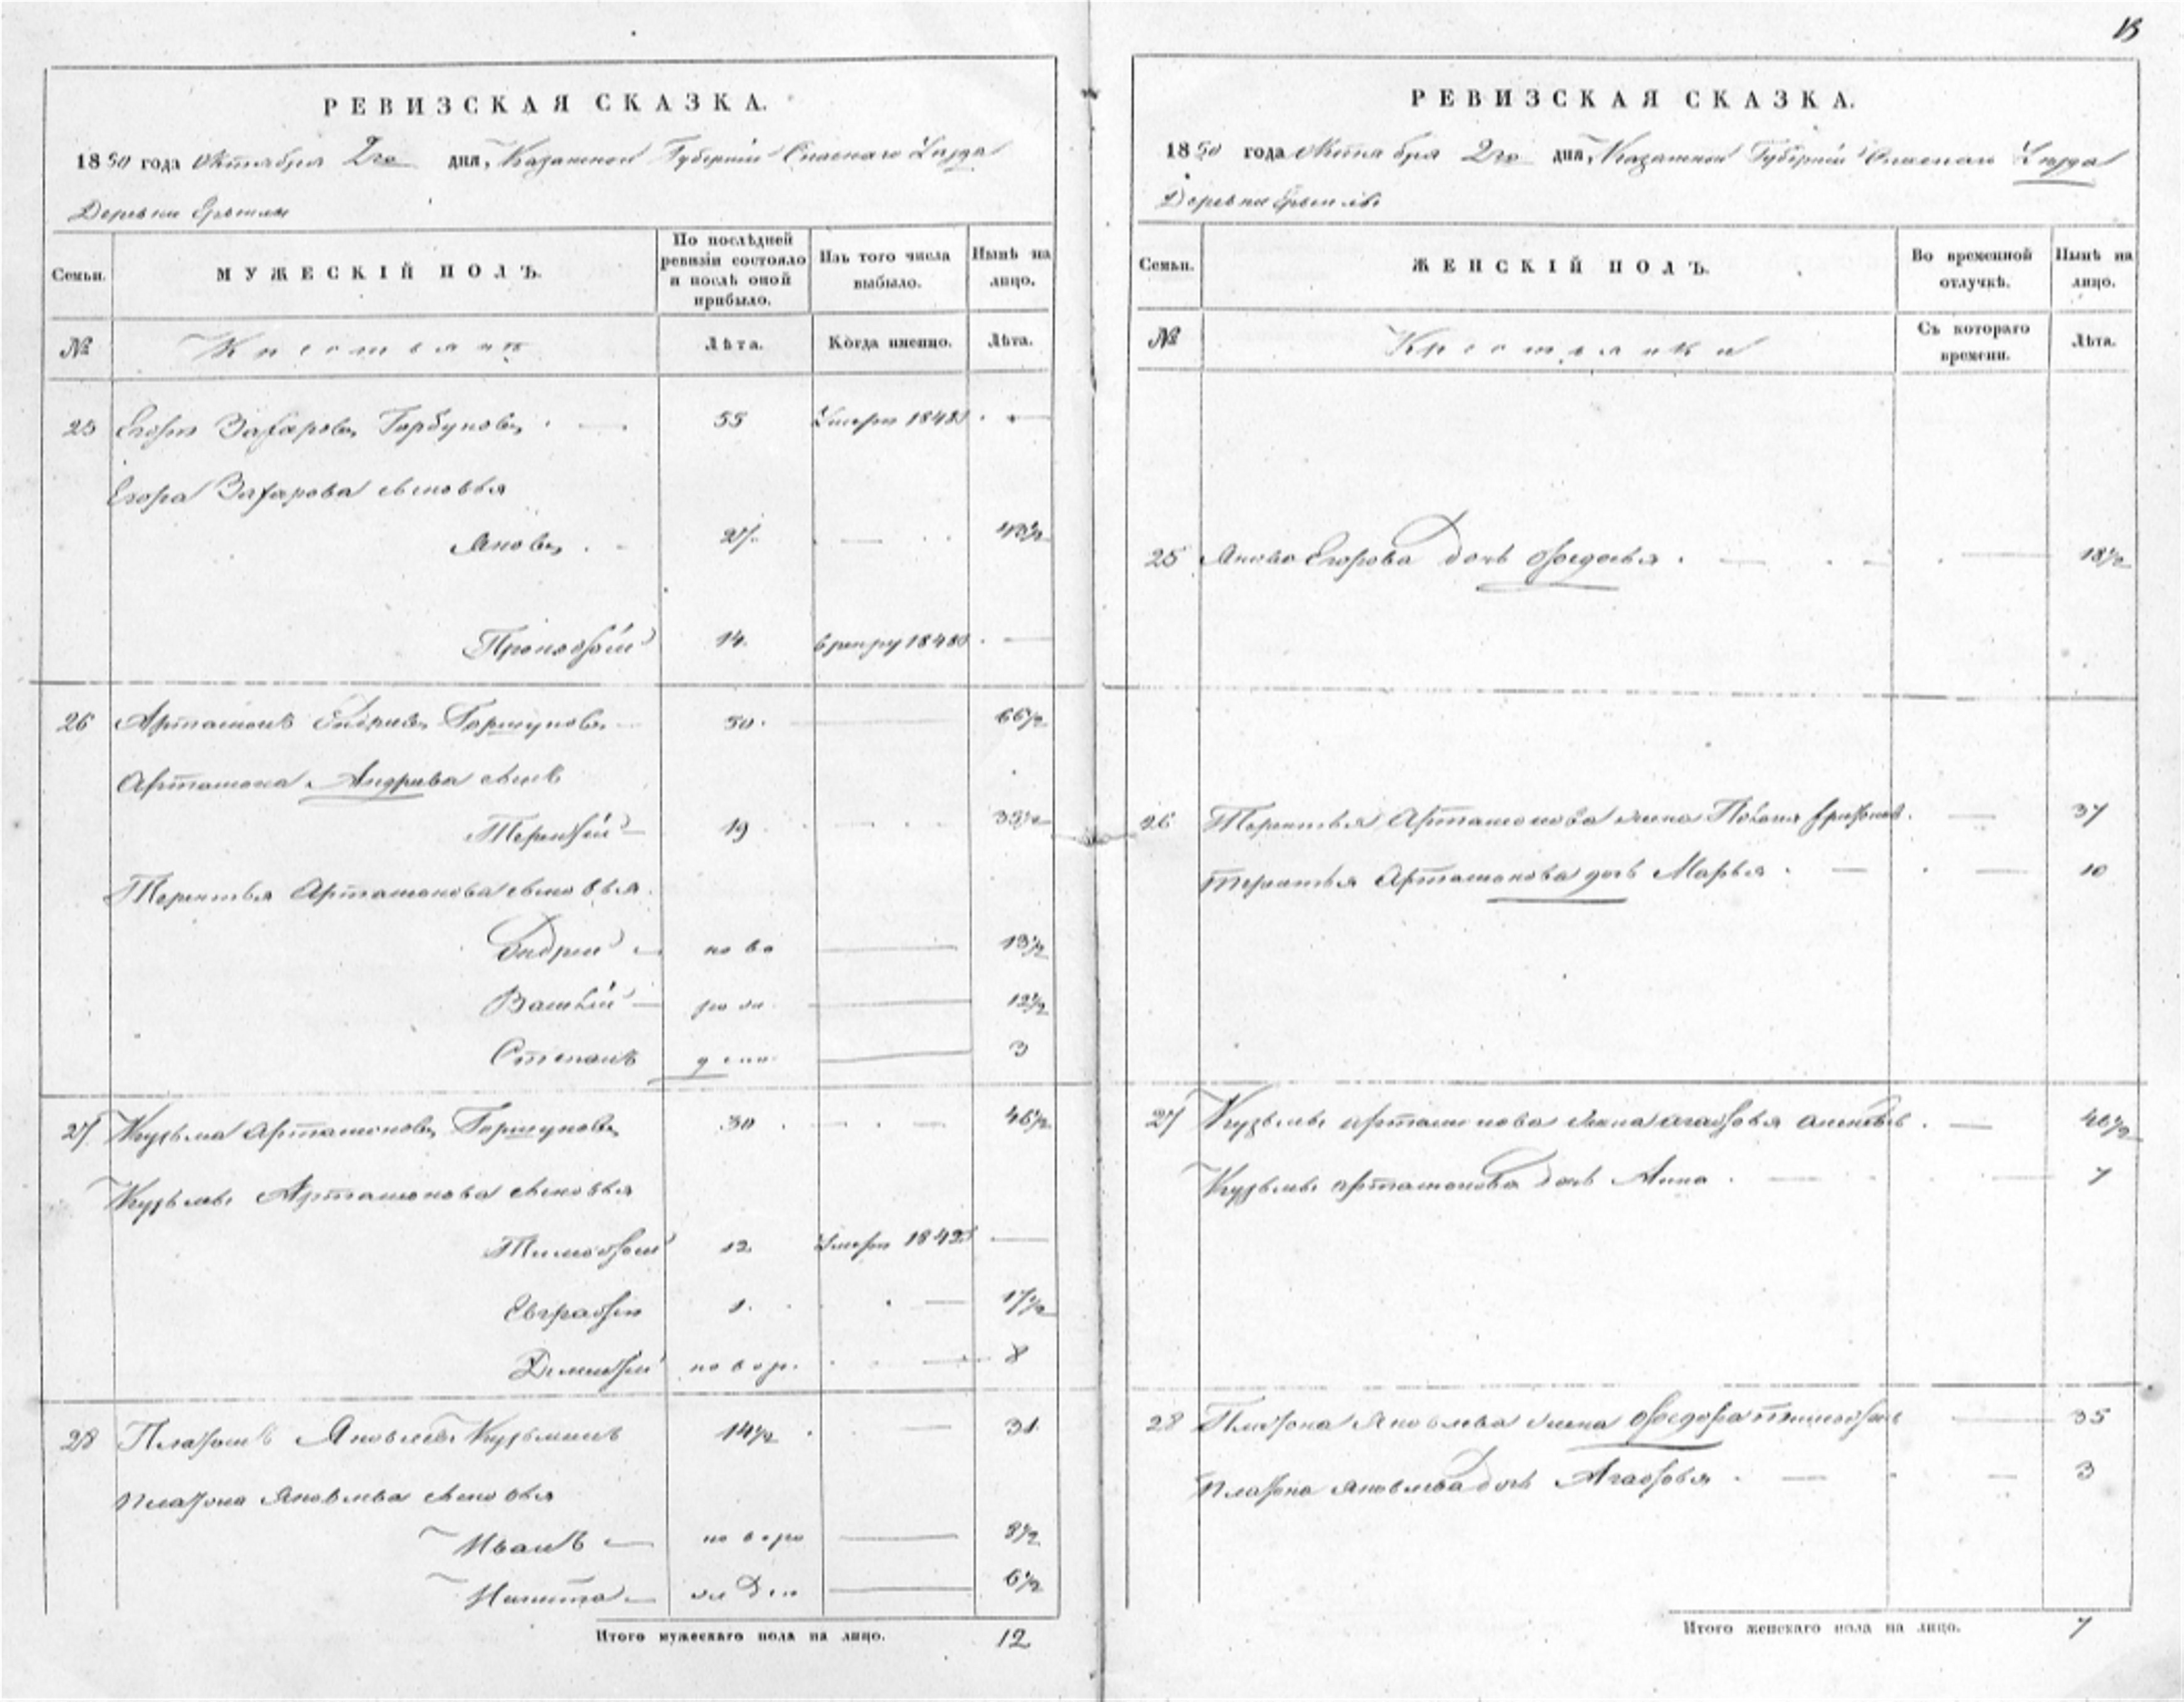 13
РЕВИЗСКАЯ СКАЗКА.
1850 года Октября 2го дня, Казанской Губерніи Спаскаго Уезда
Деревни
Семьи. МУЖЕСКІЙ ПОЛЪ. По послѣдней ревизіи состояло и послѣ оной прибыло. Изъ того числа выбыло. Нынѣ на лицо.
№ Крестьянъ Лѣта. Когда именно. Лѣта.
25 Егоръ Захаровъ Горбуновъ 55 Умеръ 1848
Егора Захарова сыновья
Яковъ 27 43½
Прокофій 14 в рекру 1848
26 Артамонъ Андриевъ Горшуновъ 50 66½
Артамона Андрива сынъ
Терентій 19 35½
Терентья Артамонова сыновья
Андрей ново 13½
Василій рож 12½
Степанъ дены 3
27 Кузьма Артамоновъ Горшуновъ 30 46½
Кузьмы Артамонова сыновья
Тимофей 12 Умеръ 1842
Евграфъ 1 17½
Дементій новор. 8
28 Платонъ Яковлевъ Кузьминъ 14½ 31
Платона Яковлева сыновья
Иванъ новоро 8½
Никита жден 6½
Итого мужескаго пола на лицо. 12
РЕВИЗСКАЯ СКАЗКА.
1850 года Октября 2го дня, Казанской Губерніи Спаскаго Уезда
Деревни
Семьи. ЖЕНСКІЙ ПОЛЪ. Во временной отлучкѣ. Нынѣ на лицо.
№ Крестьянки Съ котораго времени. Лѣта.
25 Якова Егорова дочь Федосья 18½
26 Терентья Артамонова жена 37
Терентья Артамонова дочь Марья 10
27 Кузьмы Артамонова жена Агафья 46½
Кузьмы Артамонова дочь Анна 7
28 Платона Яковлева жена Федора Тимофев 35
Платона Яковлева дочь Агафья 3
Итого женскаго пола на лицо. 7